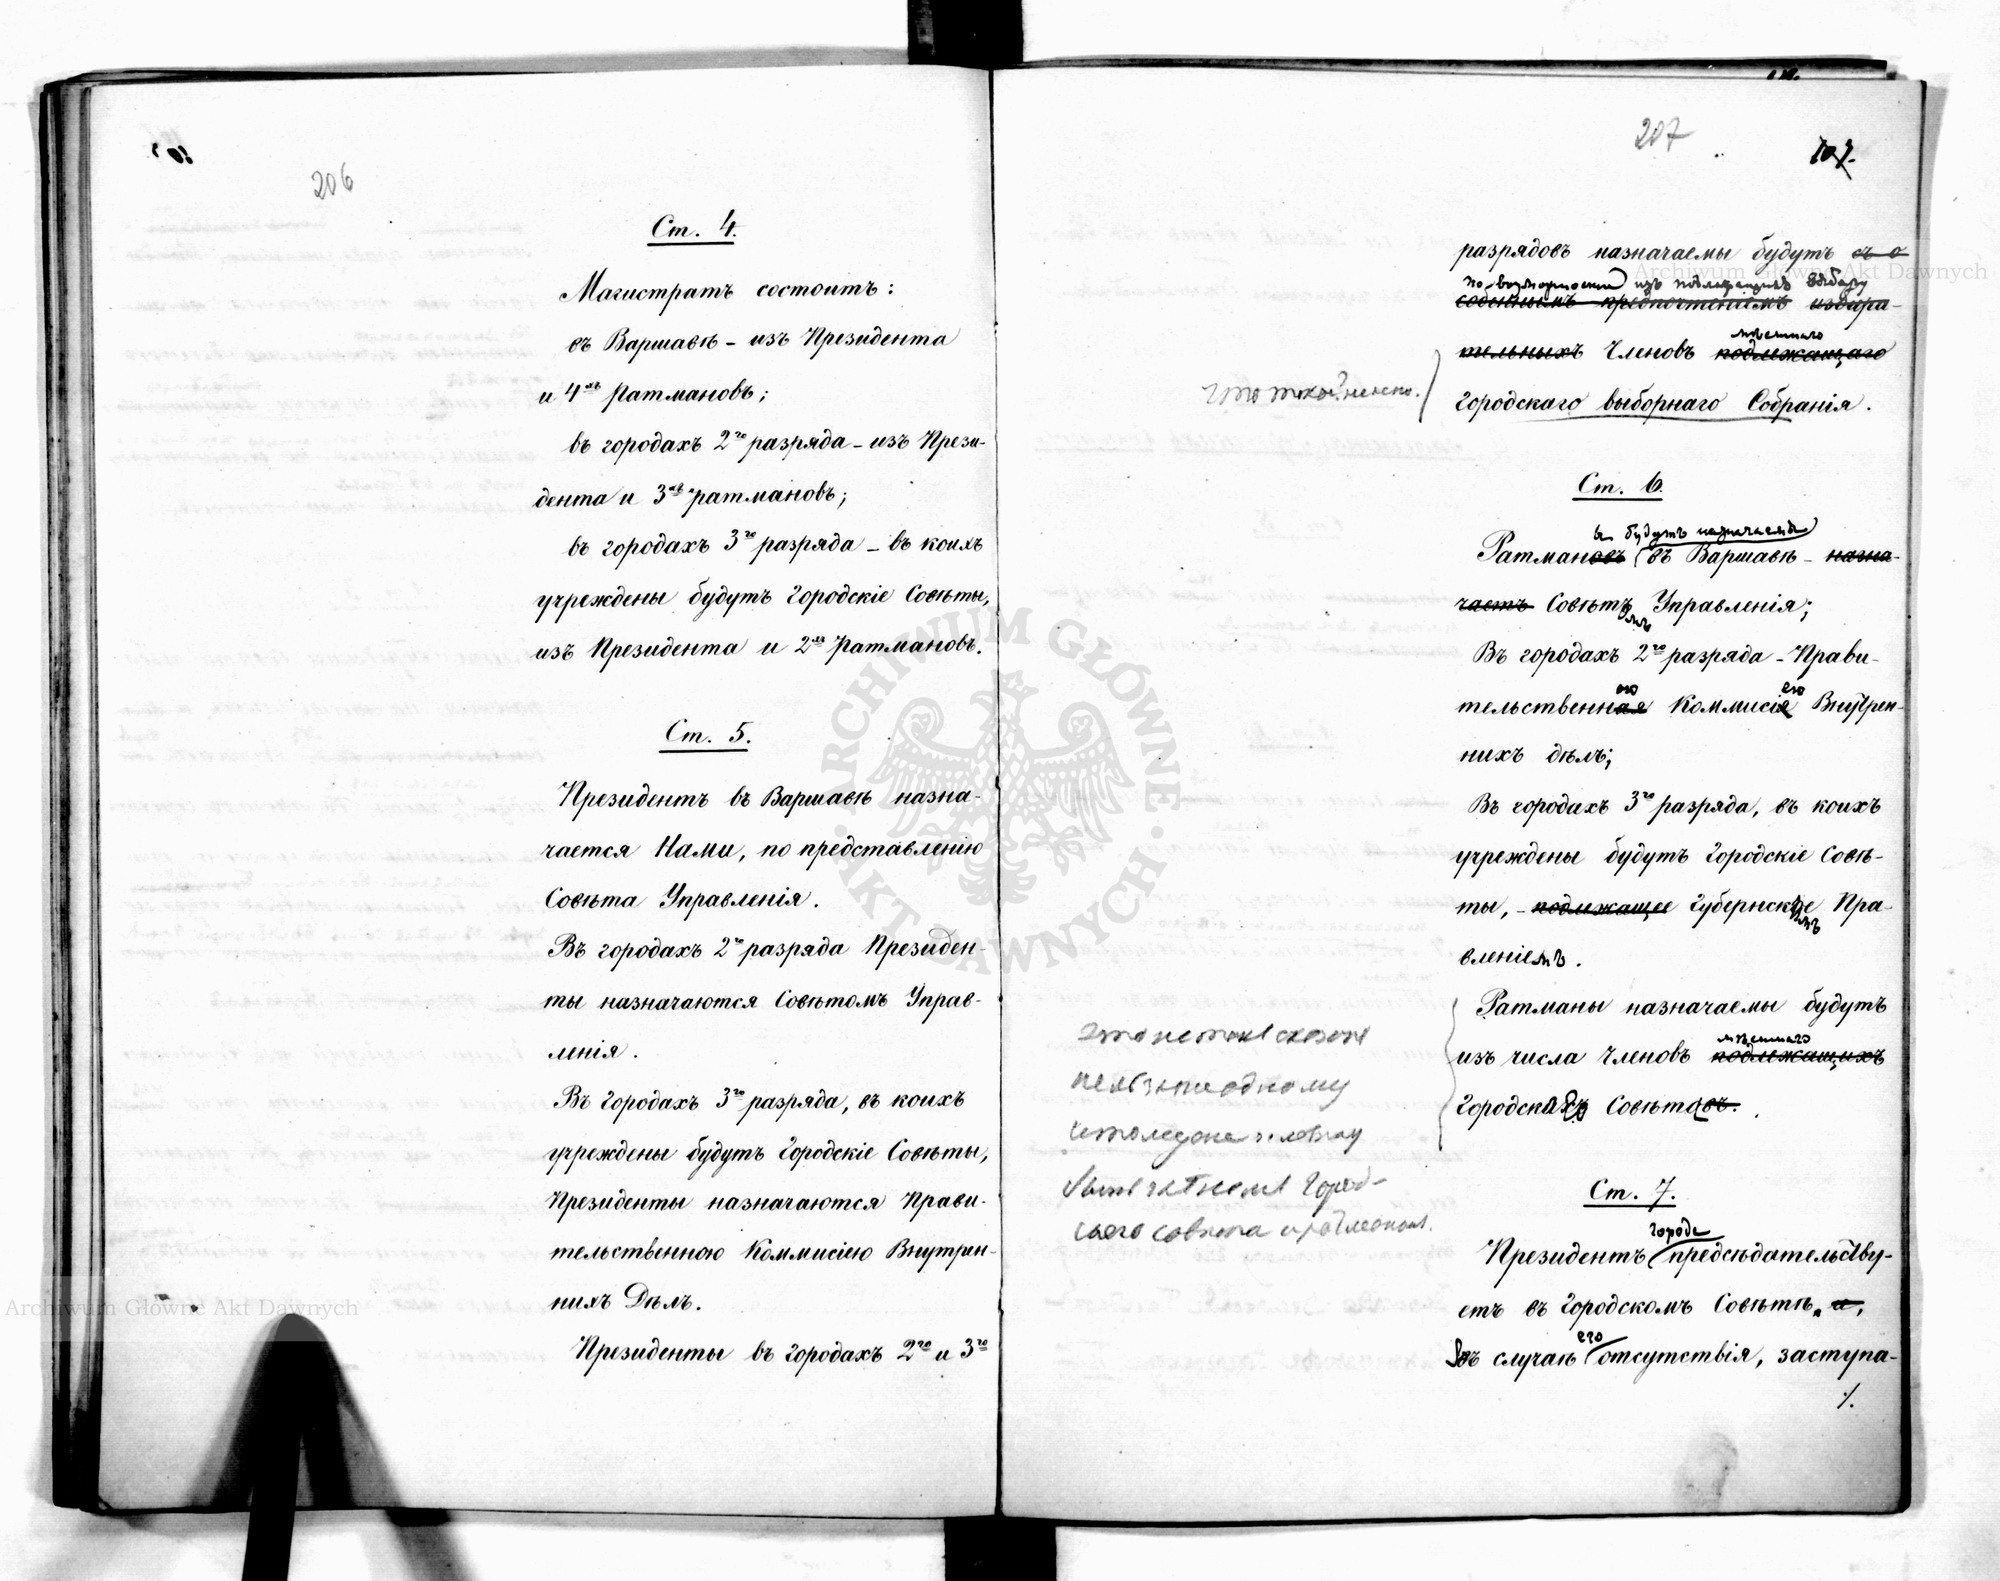 206
Ст. 4.
Магистратъ состоитъ:
въ Варшавѣ – изъ Президента
и 4хъ Ратмановъ;
въ городахъ 2го разряда – изъ Прези-
дента и 3хъ ратмановъ;
въ городахъ 3го разряда – въ коихъ
учреждены будутъ Городскіе Совѣты,
изъ Президента и 2хъ Ратмановъ.
Ст. 5.
Президентъ въ Варшавѣ назна-
чается Нами, по представленію
Совѣта Управленія.
Въ городахъ 2го разряда Президен-
ты назначаются Совѣтомъ Управ-
ленія.
Въ городахъ 3го разряда, въ коихъ
учреждены будутъ Городскіе Совѣты,
Президенты назначаются Прави-
тельственною Коммисіею Внутрен-
нихъ Дѣлъ.
Президенты въ городахъ 2го и 3го
207
107.
разрядовъ назначаемы будутъ съ о
по возможности изъ подлежащихъ выбору
собеннымъ предпочтеніемъ избира-
мѣстнаго
тельныхъ Членовъ подлежащаго
городскаго выборнаго Собранія.
Ст. 6.
ы будутъ назначаемы
Ратмановъ въ Варшавѣ – назна-
чаетъ Совѣтъ Управленія;
омъ
Въ городахъ 2го разряда – Прави-
ою ею
тельственная Коммисія Внутрен-
нихъ дѣлъ;
Въ городахъ 3го разряда, въ коихъ
учреждены будутъ Городскіе Совѣ-
ты, – подлежащее Губернское Пра-
имъ
вленіемъ.
Ратманы назначаемы будутъ
мѣстнаго
изъ числа Членовъ подлежащихъ
Городск Совѣтовъ.
Ст. 7.
города
Президентъ предсѣдательству-
етъ въ Городскомъ Совѣтѣ, и,
его
въ случаѣ отсутствія, заступа-
./.
Archiwum Główne Akt Dawnych
Archiwum Główne Akt Dawnych
ARCHIWUM GŁÓWNE · AKT DAWNYCH ·